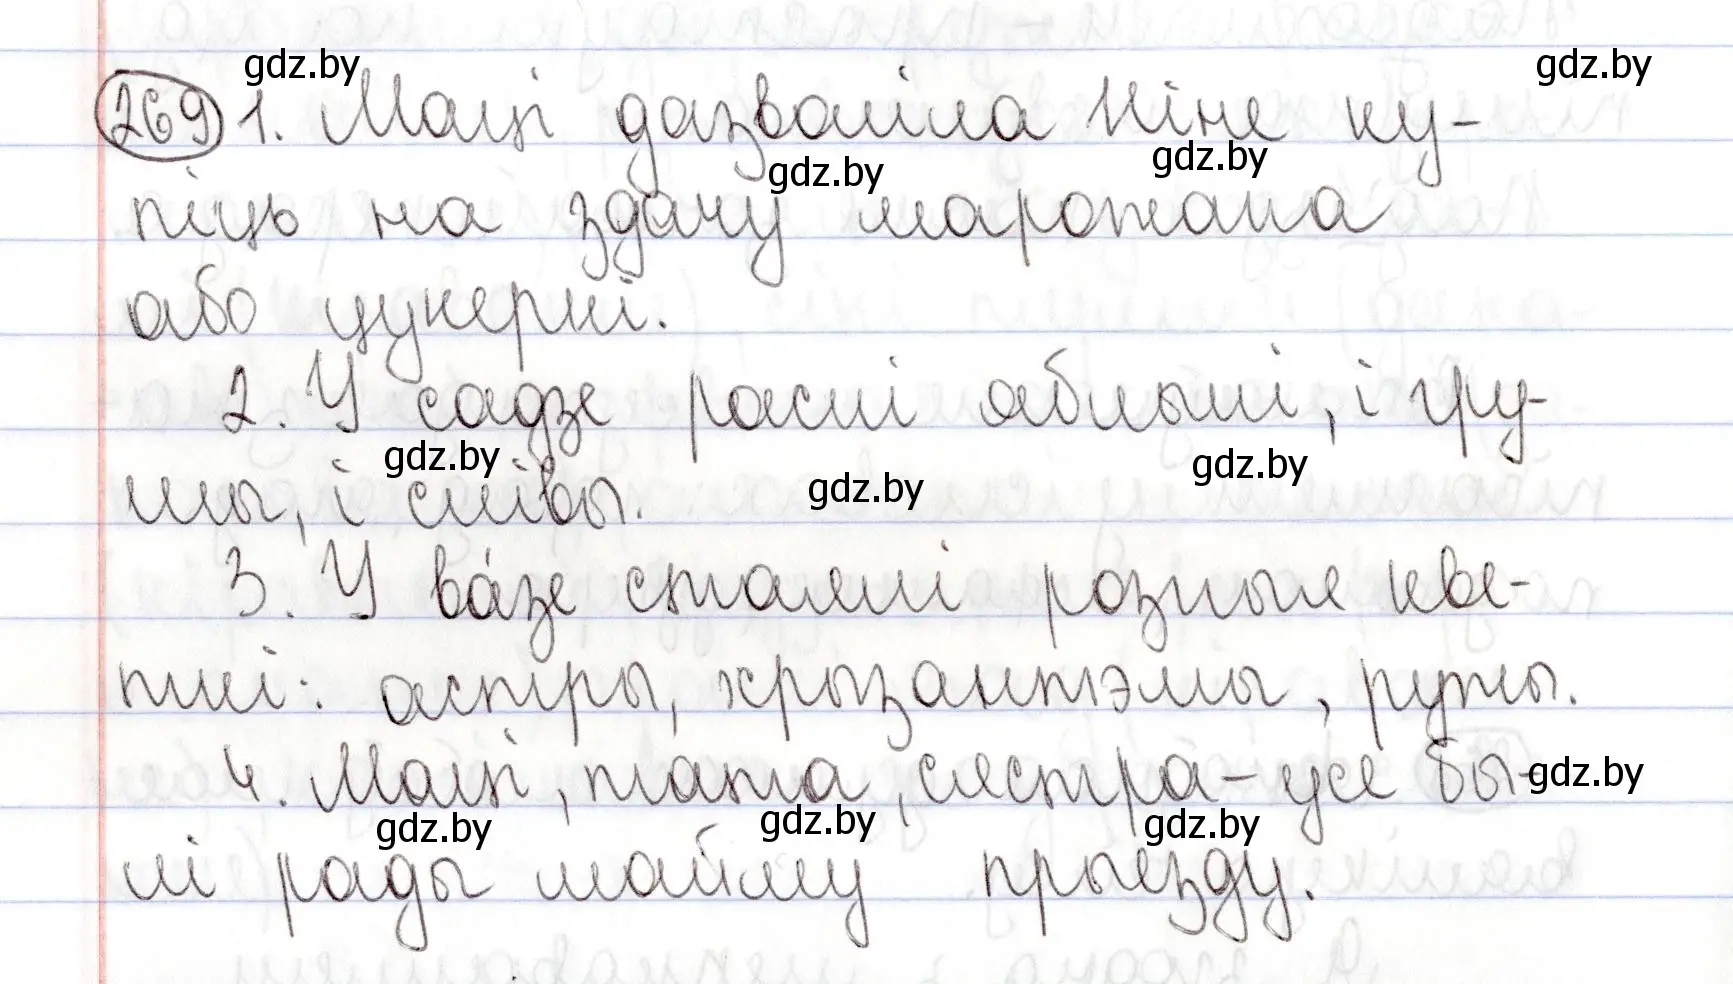 gdz.by gdz.by
269 1. Маці дазволіла Ніне ку-
gdz.by gdz.by
піць на здачу марожана
або цукеркі.
2. У садзе раслі яблыкі, і гру-
gdz.by gdz.by gdz.by
шы, і слівы.
3. У ва́зе стаялі розныя кве-
ткі: астры, хрызантэмы, ружы.
4. Маці, тата, сястра – усе бы- gdz.by
gdz.by gdz.by gdz.by
лі рады майму прыезду.